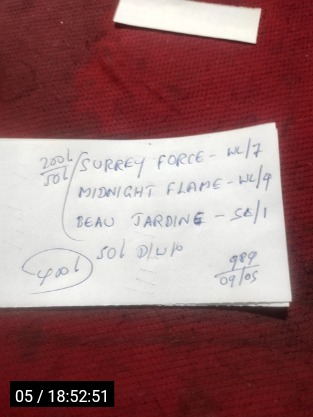 200L
50L
SURREY FORCE - WL/7
MIDNIGHT FLAME - WL/9
BEAU JARDINE - SE/1
50L D/U/P
400L
989
09/05
05 / 18:52:51